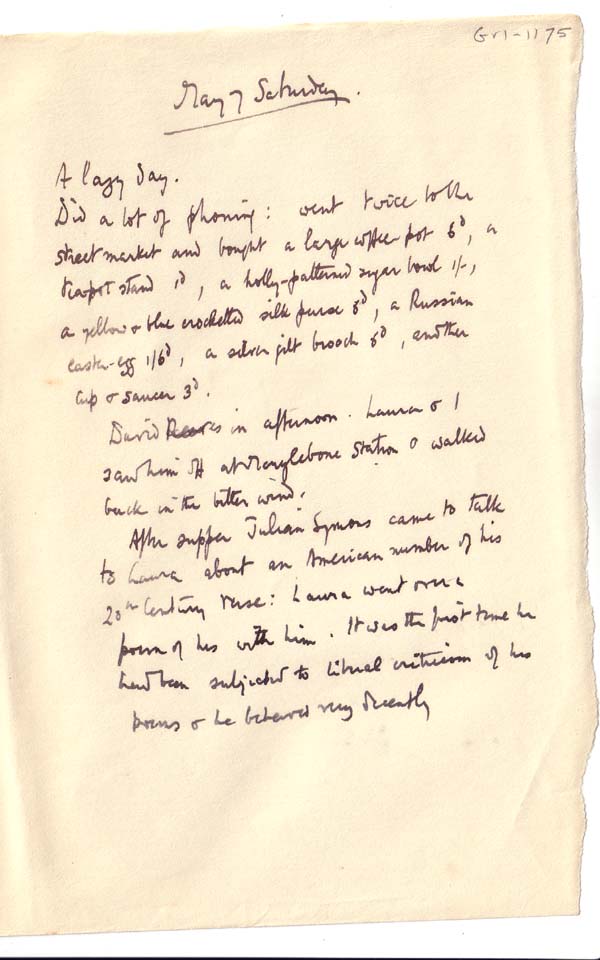 Gr1-1175
May 7 Saturday.
A lazy day.
Did a lot of phoning: went twice to the
street market and bought a large coffee-pot 6d, a
teapot stand 1d, a holly-patterned sugar bowl 1/-,
a yellow & blue crocketted silk purse 6d, a Russian
easter-egg 1/6d, a silver gilt brooch 6d, another
cup & saucer 3d.
David Reeves in afternoon. Laura & I
saw him off at Marylebone Station & walked
back in the bitter wind.
After supper Julian Symons came to talk
to Laura about an American number of his
20th Century Verse: Laura went over a
poem of his with him. It was the first time he
had been subjected to literal criticism of his
poems & he behaved very decently